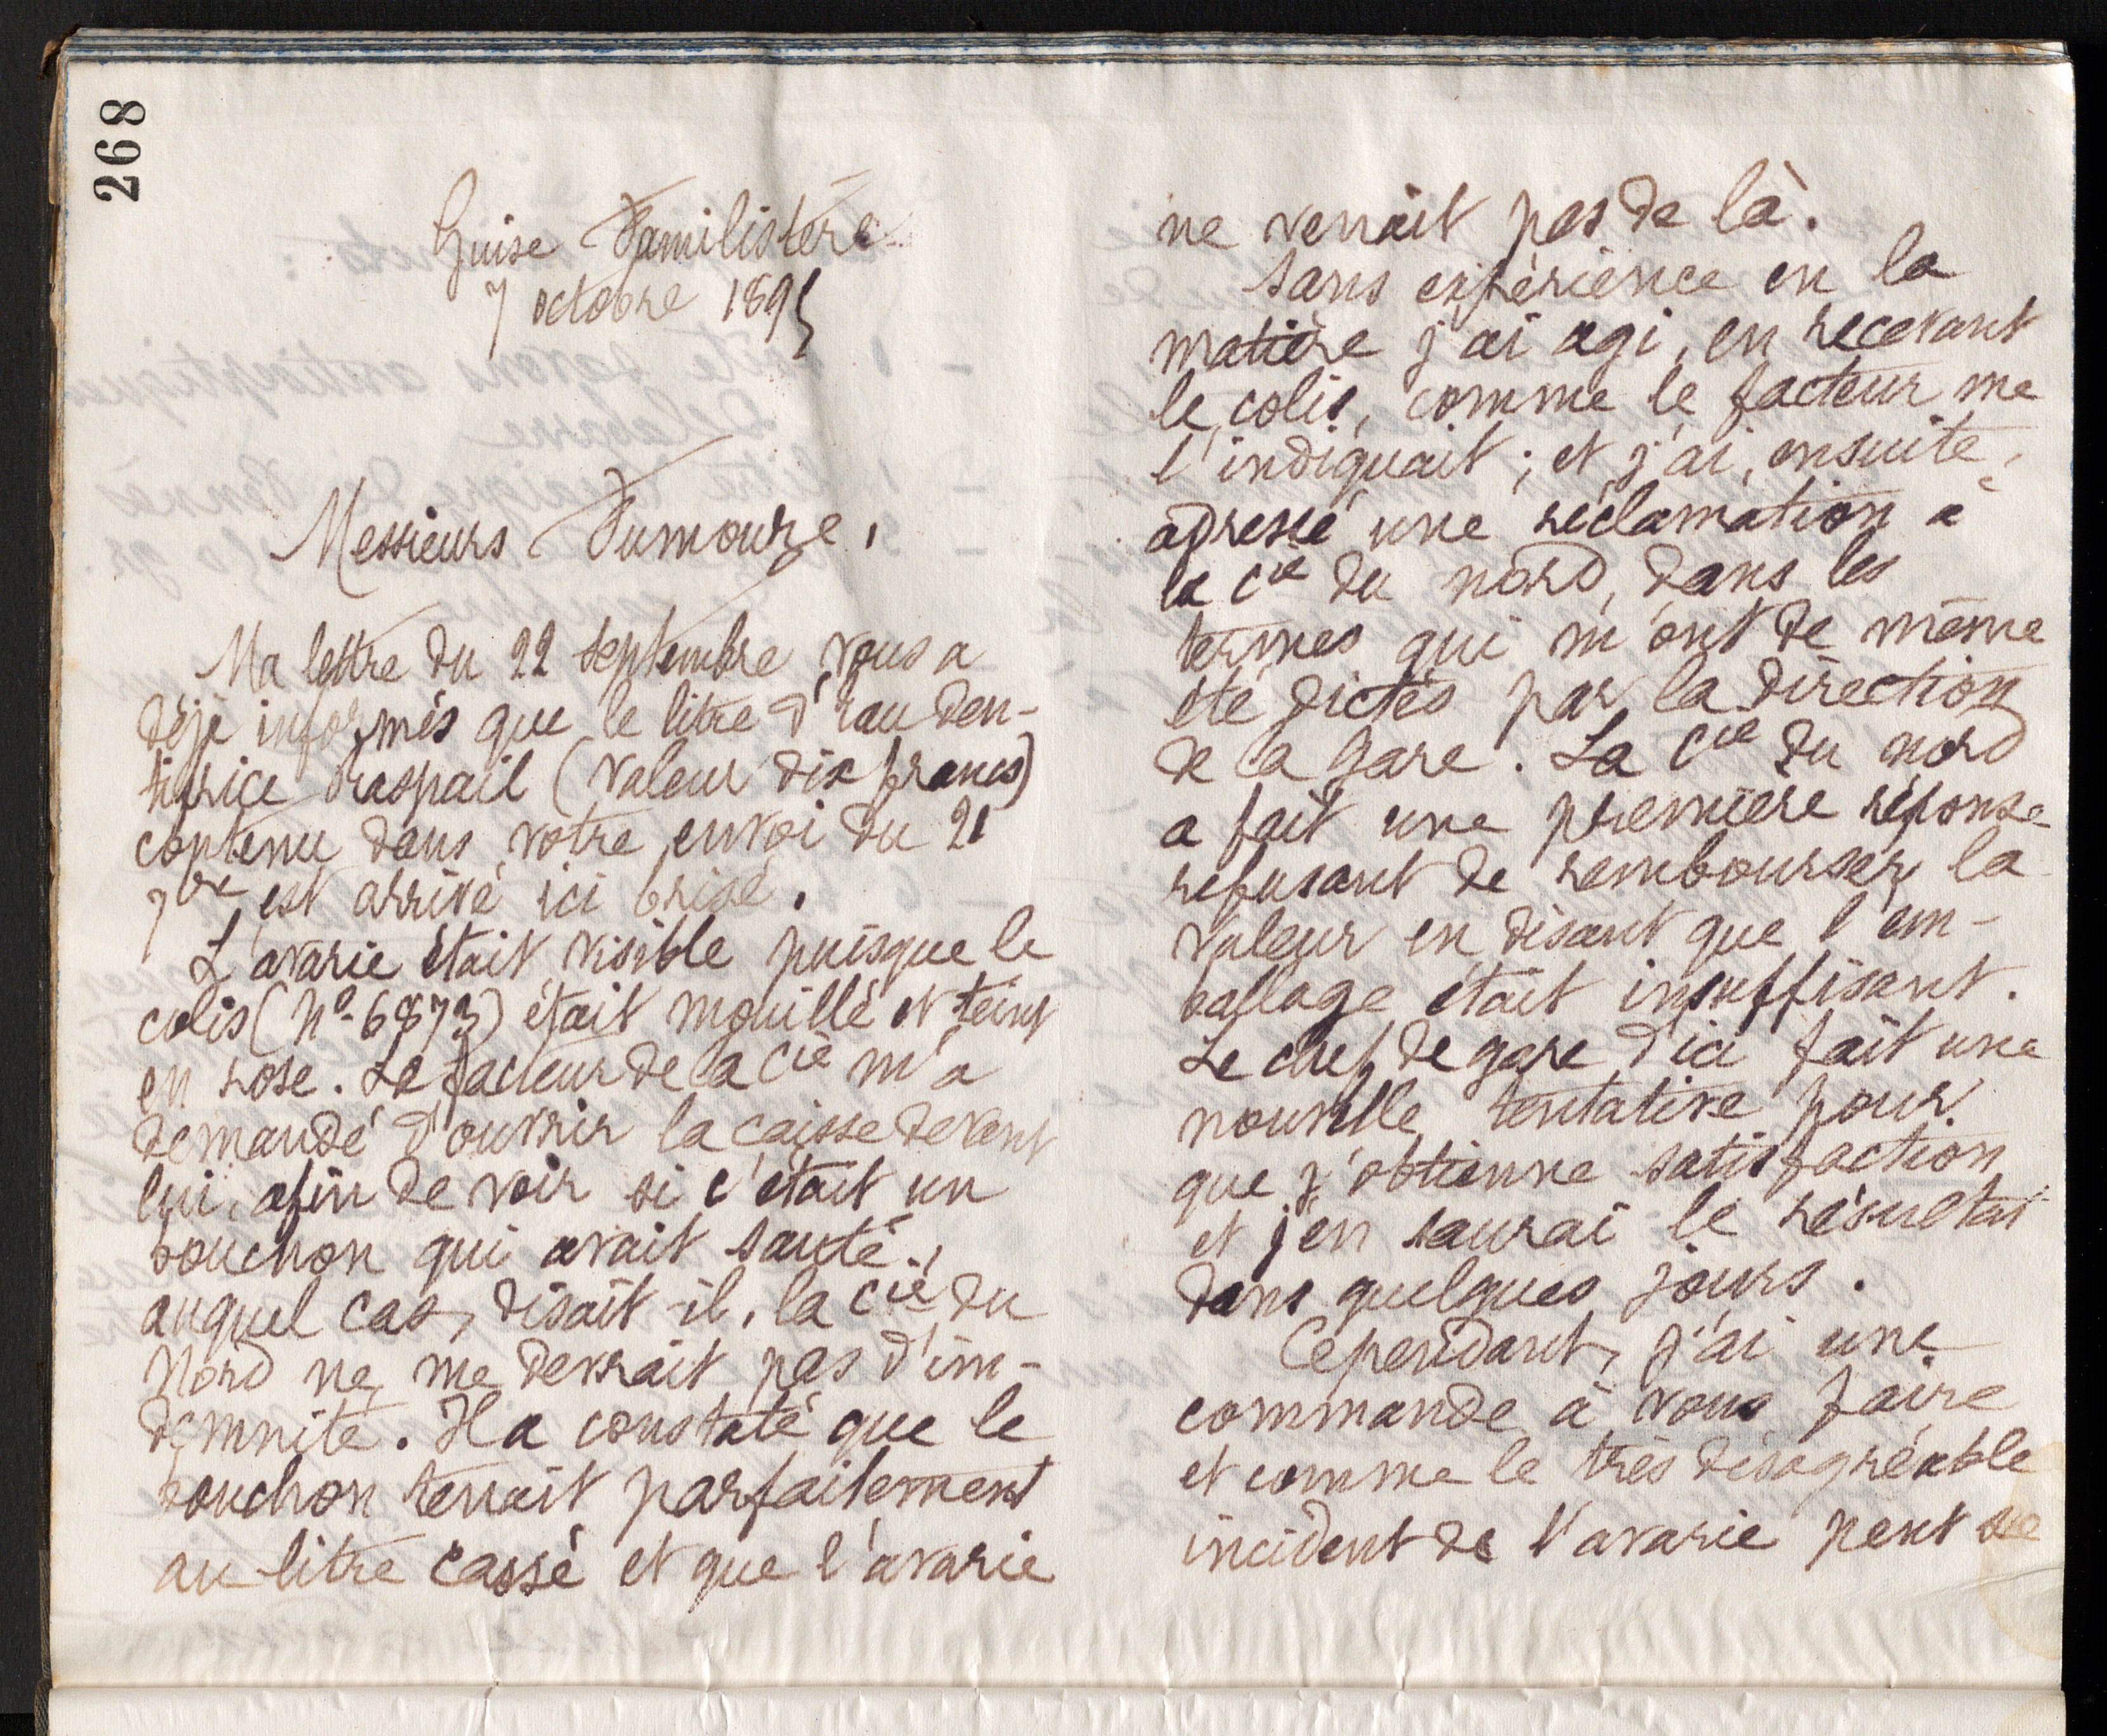 268
Guise Familistère
7 octobre 1895
Messieurs Fumouze,
Ma lettre du 22 septembre vous a
déjà informés que le litre d'eau den-
tifrice Raspail (valeur dix francs)
contenu dans votre envoi du 21
7bre est arrivé ici brisé.
L'avarie était visible puisque le
colis (No 6873) était mouillé et teint
en rose. Le facteur de la Cie m'a
demandé d'ouvrir la caisse devant
lui, afin de voir si c'était un
bouchon qui avait sauté,
auquel cas, disait-il, la Cie du
Nord ne me devrait pas d'in-
demnité. Il a constaté que le
bouchon tenait parfaitement
au litre cassé et que l'avarie
ne venait pas de là.
Sans expérience en la
matière j'ai agi, en recevant
le colis, comme le facteur me
l'indiquait ; et j'ai, ensuite,
adressé une réclamation à
la Cie du Nord, dans les
termes qui m'ont de même
été dictés par la direction
de la gare. La Cie du nord
a fait une première réponse
refusant de rembourser la
valeur en disant que l'em-
ballage était insuffisant.
Le chef de gare d'ici fait une
nouvelle tentative pour
que j'obtienne satisfaction
et j'en saurai le résultat
dans quelques jours.
Cependant, j'ai une
commande à vous faire
et comme le très désagréable
incident de l'avarie peut se